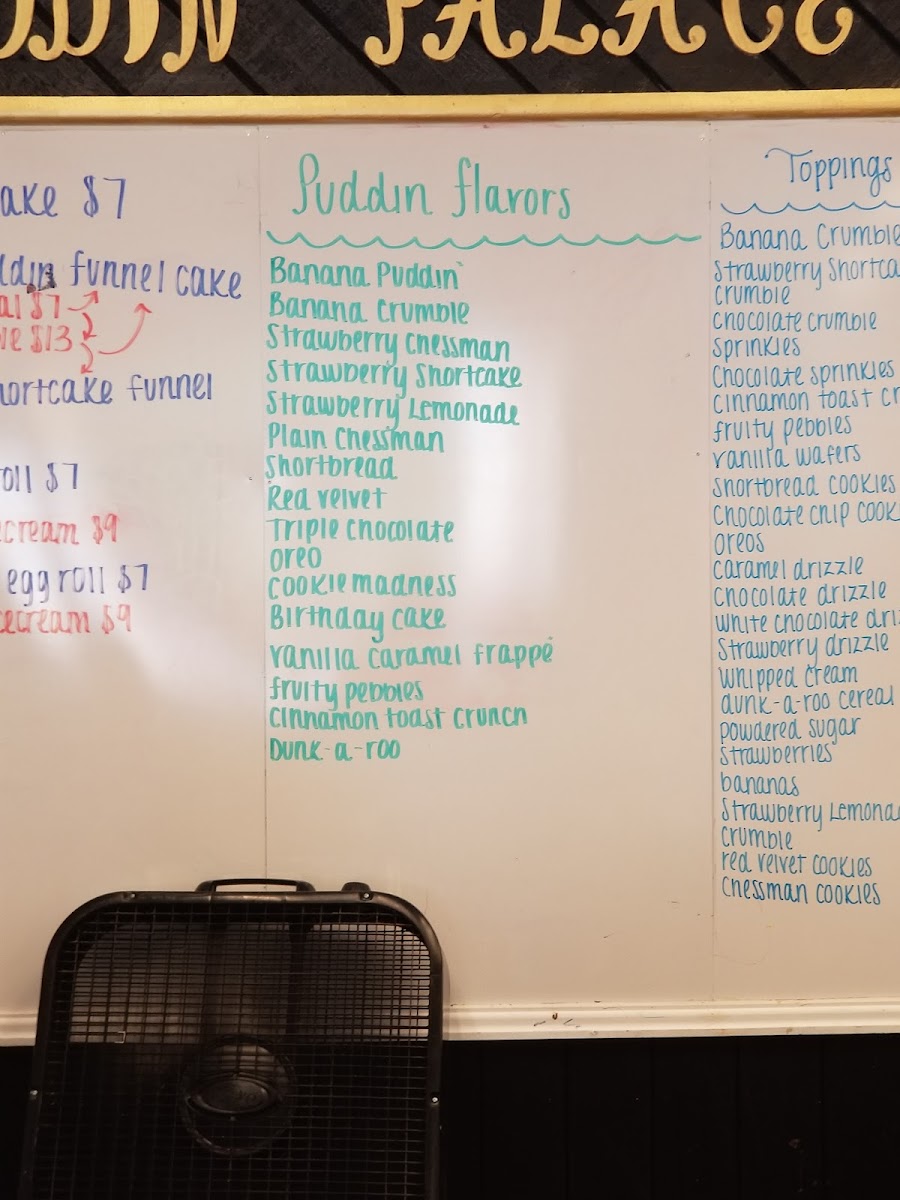 PALACE
ake $7
funnel cake
$7
$13
hortcake funnel
oll $7
cecream $9
egg roll $7
cecream $9
Puddin flavors
Banana Puddin'
Banana Crumble
Strawberry Chessman
Strawberry Shortcake
Strawberry Lemonade
Plain Chessman
Shortbread
Red velvet
Triple Chocolate
Oreo
cookie madness
Birthday cake
vanilla caramel frappé
fruity pebbles
cinnamon toast crunch
Dunk-a-roo
Toppings
Banana Crumble
Strawberry Shortca
crumble
chocolate crumble
sprinkles
Chocolate sprinkles
cinnamon toast cr
fruity pebbles
vanilla wafers
shortbread cookies
chocolate chip cook
oreos
caramel drizzle
chocolate drizzle
white chocolate driz
Strawberry drizzle
whipped cream
dunk-a-roo cereal
powdered sugar
strawberries
bananas
Strawberry Lemona
crumble
red velvet cookies
Chessman cookies